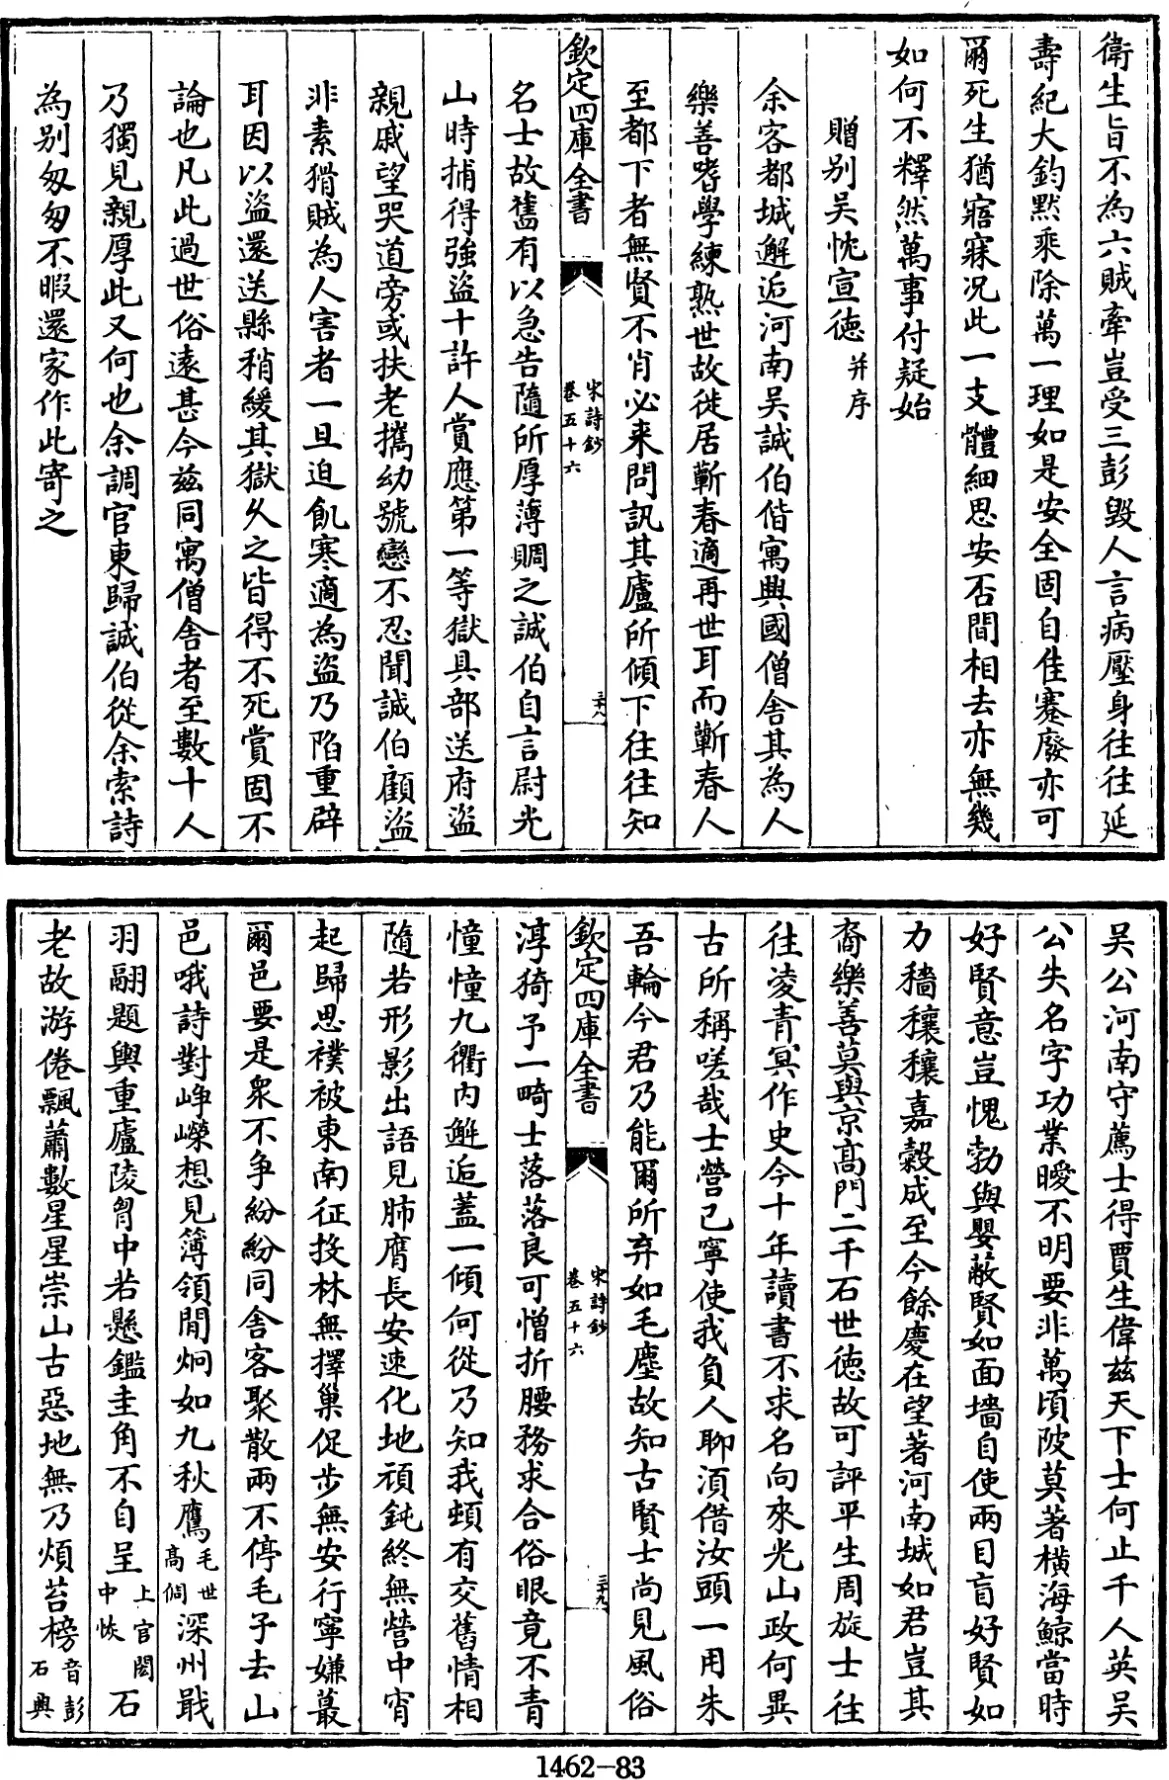 衛生旨不為六賊牽豈受三彭毀人言病壓身往往延
壽紀大鈞黙乘除萬一理如是安全固自佳蹇廢亦可
爾死生猶寤寐況此一支體細思安否間相去亦無幾
如何不釋然萬事付疑始
贈别吳忱宣徳并序
余客都城邂逅河南吴誠伯偕寓興國僧舍其為人
樂善嗜學練熟世故徙居蘄春適再世耳而蘄春人
至都下者無賢不肖必来問訊其廬所傾下往往知
欽定四庫全書
宋詩鈔
卷五十六
三十八
名士故舊有以急告隨所厚薄賙之誠伯自言尉光
山時捕得強盜十許人賞應第一等獄具部送府盜
親戚望哭道旁或扶老攜幼號戀不忍聞誠伯顧盜
非素猾賊為人害者一旦迫飢寒適為盜乃陷重辟
耳因以盜還送縣稍緩其獄久之皆得不死賞固不
論也凡此過世俗遠甚今兹同寓僧舍者至數十人
乃獨見親厚此又何也余調官東歸誠伯從余索詩
為别匆匆不暇還家作此寄之
吴公河南守薦士得賈生偉兹天下士何止千人英吴
公失名字功業曖不明要非萬頃陂莫著横海鯨當時
好賢意豈愧勃與嬰蔽賢如面墻自使兩目盲好賢如
力穡穰穰嘉穀成至今餘慶在望著河南城如君豈其
裔樂善莫與京髙門二千石世徳故可評平生周旋士往
往凌青冥作史今十年讀書不求名向來光山政何異
古所稱嗟哉士營己寧使我負人聊湏借汝頭一用朱
吾輪今君乃能爾所弃如毛塵故知古賢士尚見風俗
欽定四庫全書
宋詩鈔
卷五十六
三十九
淳猗予一畸士落落良可憎折腰務求合俗眼竟不青
憧憧九衢内邂逅蓋一傾何從乃知我頓有交舊情相
隨若形影出語見肺膺長安速化地頑鈍終無營中宵
起歸思襆被東南征投林無擇巢促步無安行寧嫌蕞
爾邑要是衆不争紛紛同舍客聚散兩不停毛子去山
邑哦詩對峥嶸想見簿領間炯如九秋鷹毛世髙倜深州戢
羽翮題輿重廬陵胷中若懸鑑圭角不自呈上官閎中恢石
老故游倦飄蕭數星星崇山古惡地無乃煩苔榜音彭石興
1462-83